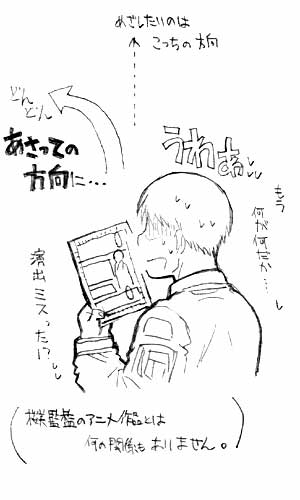 めざしたいのは
こっちの方向
どんどん
あさっての
方向に…
うわぁぁ
もう
何が何だか…
演出ミスった!?
監督のアニメ作品とは
何の関係もありません。